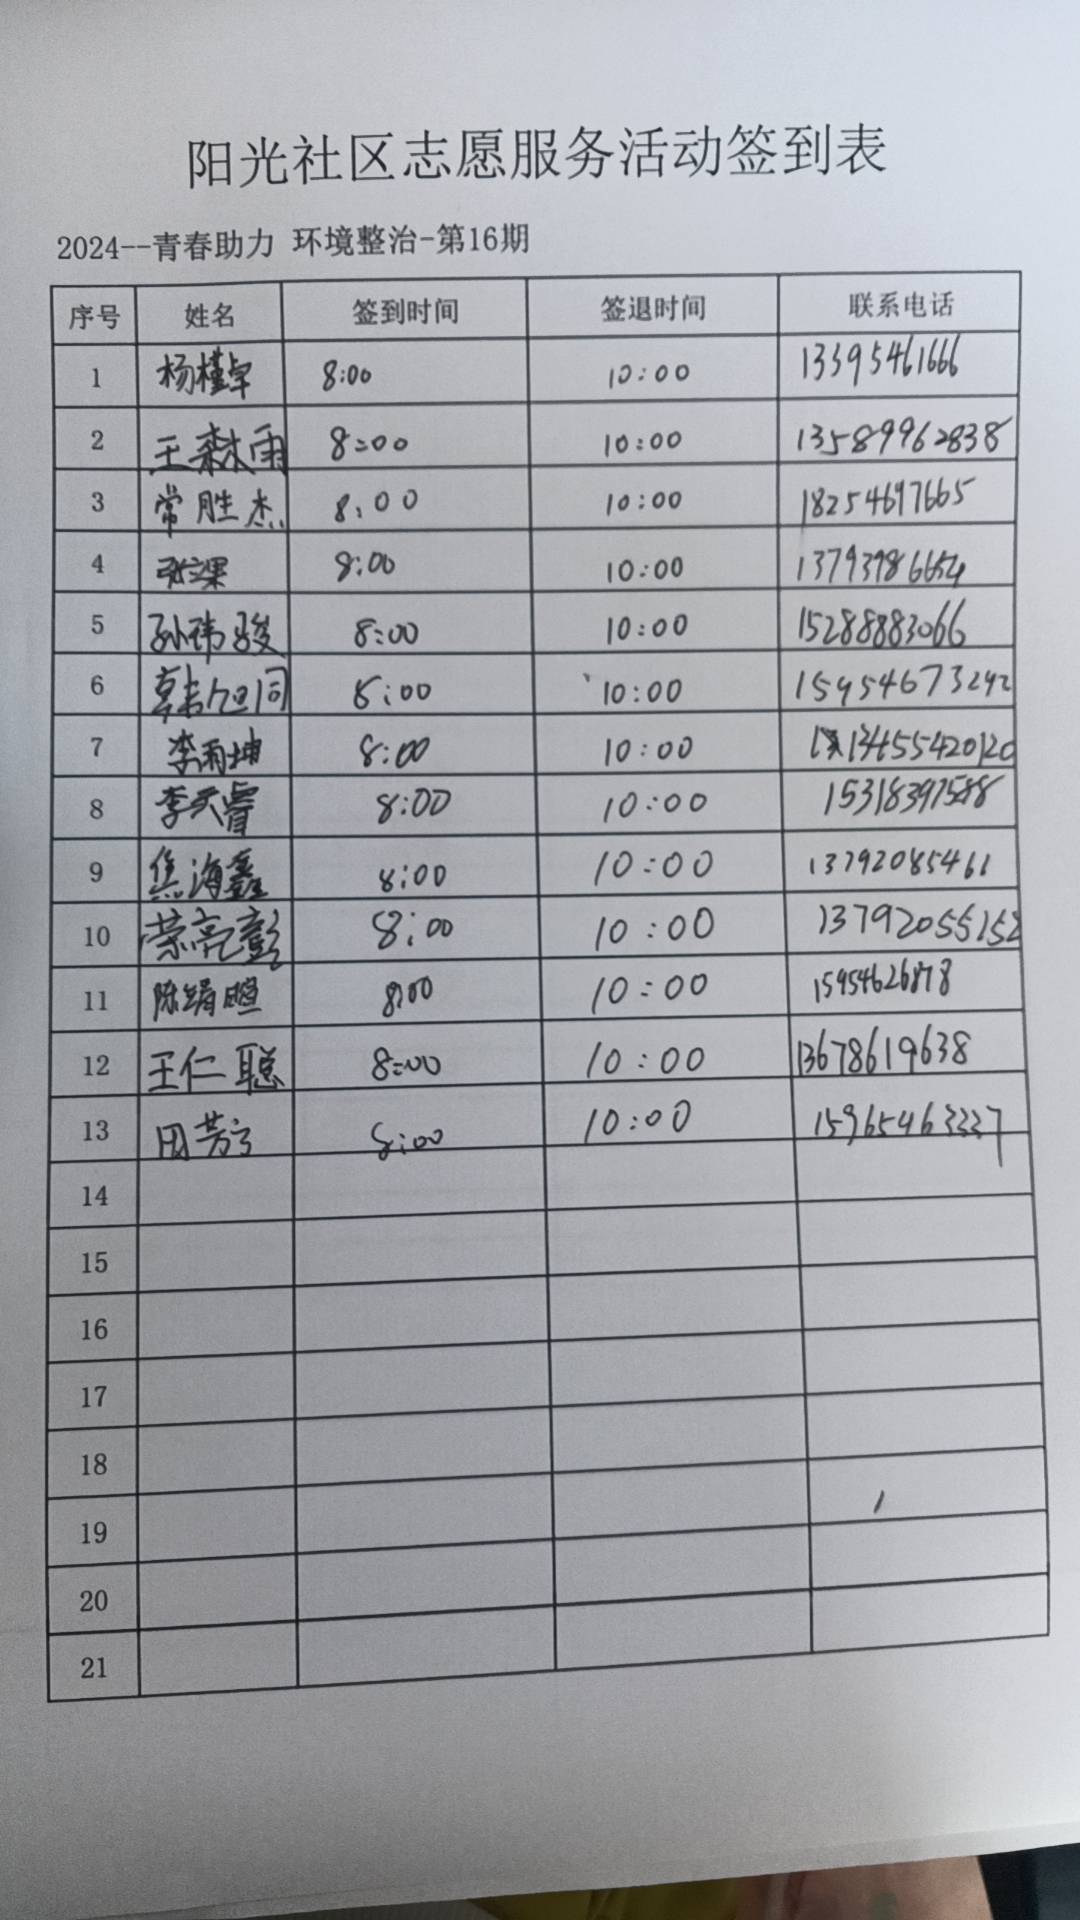 阳光社区志愿服务活动签到表
2024--青春助力 环境整治-第16期
序号 姓名 签到时间 签退时间 联系电话
1 杨槿卓 8:00 10:00 13395461666
2 王森雨 8:00 10:00 13589962838
3 常胜杰 8:00 10:00 18254697665
4 8:00 10:00 13793986654
5 孙祎骏 8:00 10:00 15288883066
6 韩佀同 8:00 10:00 15954673292
7 李雨坤 8:00 10:00 13455420120
8 李天睿 8:00 10:00 15318397588
9 焦海鑫 8:00 10:00 13792085461
10 荣亮彭 8:00 10:00 13792055152
11 8:00 10:00 15954626878
12 王仁聪 8:00 10:00 13678619638
13 田芳 8:00 10:00 15965463337
14
15
16
17
18
19
20
21